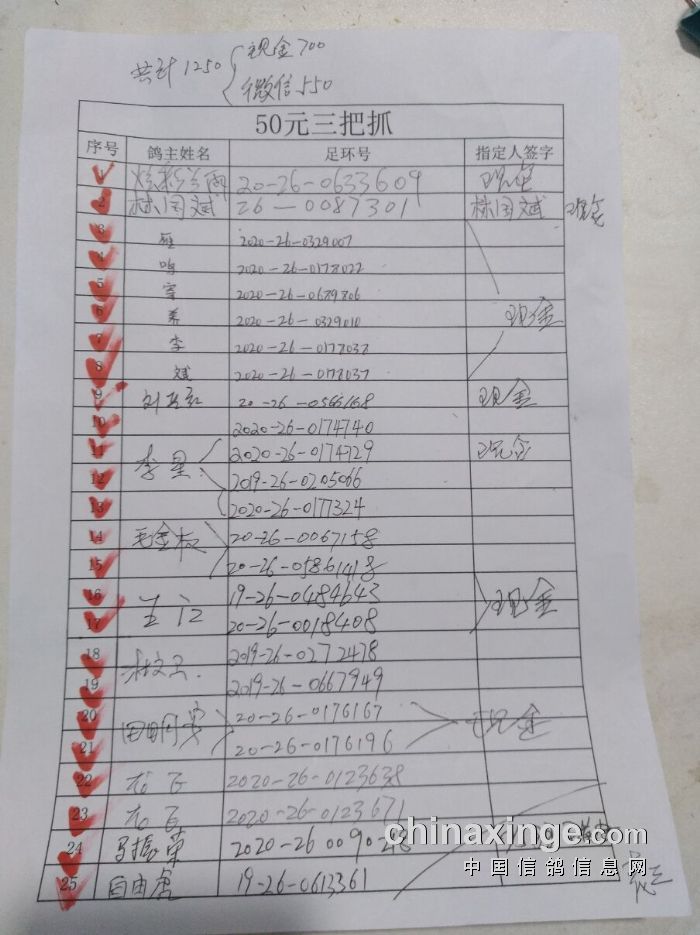 共计1250 现金700
微信550
50元三把抓
序号 鸽主姓名 足环号 指定人签字
1 20-26-0633609 现金
2 林国斌 26-0087301 林国斌 现金
3 雁 2020-26-0329007
4 鸣 2020-26-0178022
5 2020-26-0689806
6 2020-26-0329010 现金
7 李 2020-26-0178038
8 斌 2020-26-0178037
9 20-26-0566168 现金
10 2020-26-0174740
11 李星 2020-26-0174729 现金
12 2019-26-0205066
13 2020-26-0177324
14 20-26-0067158
15 20-26-0586141
16 19-26-0484643 现金
17 20-26-0018408
18 2019-26-0272478
19 2019-26-0667949
20 20-26-0176167 现金
21 20-26-0176196
22 2020-26-0123638
23 2020-26-0123671
24 马振荣 2020-26
25 自由 19-26-0613361
chinaxinge.com
中国信鸽信息网